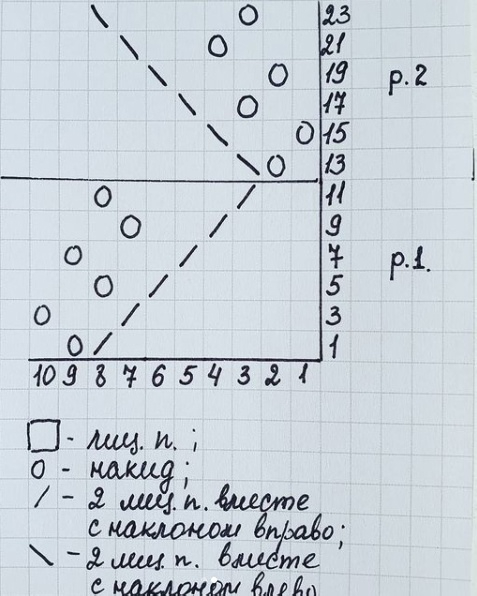 23
21
19
р.2
17
15
13
11
9
7
р.1.
5
3
1
10 9 8 7 6 5 4 3 2 1
- лиц. п. ;
О - накид;
/ - 2 лиц. п. вместе
с наклоном вправо;
\ - 2 лиц. п. вместе
с наклоном влево